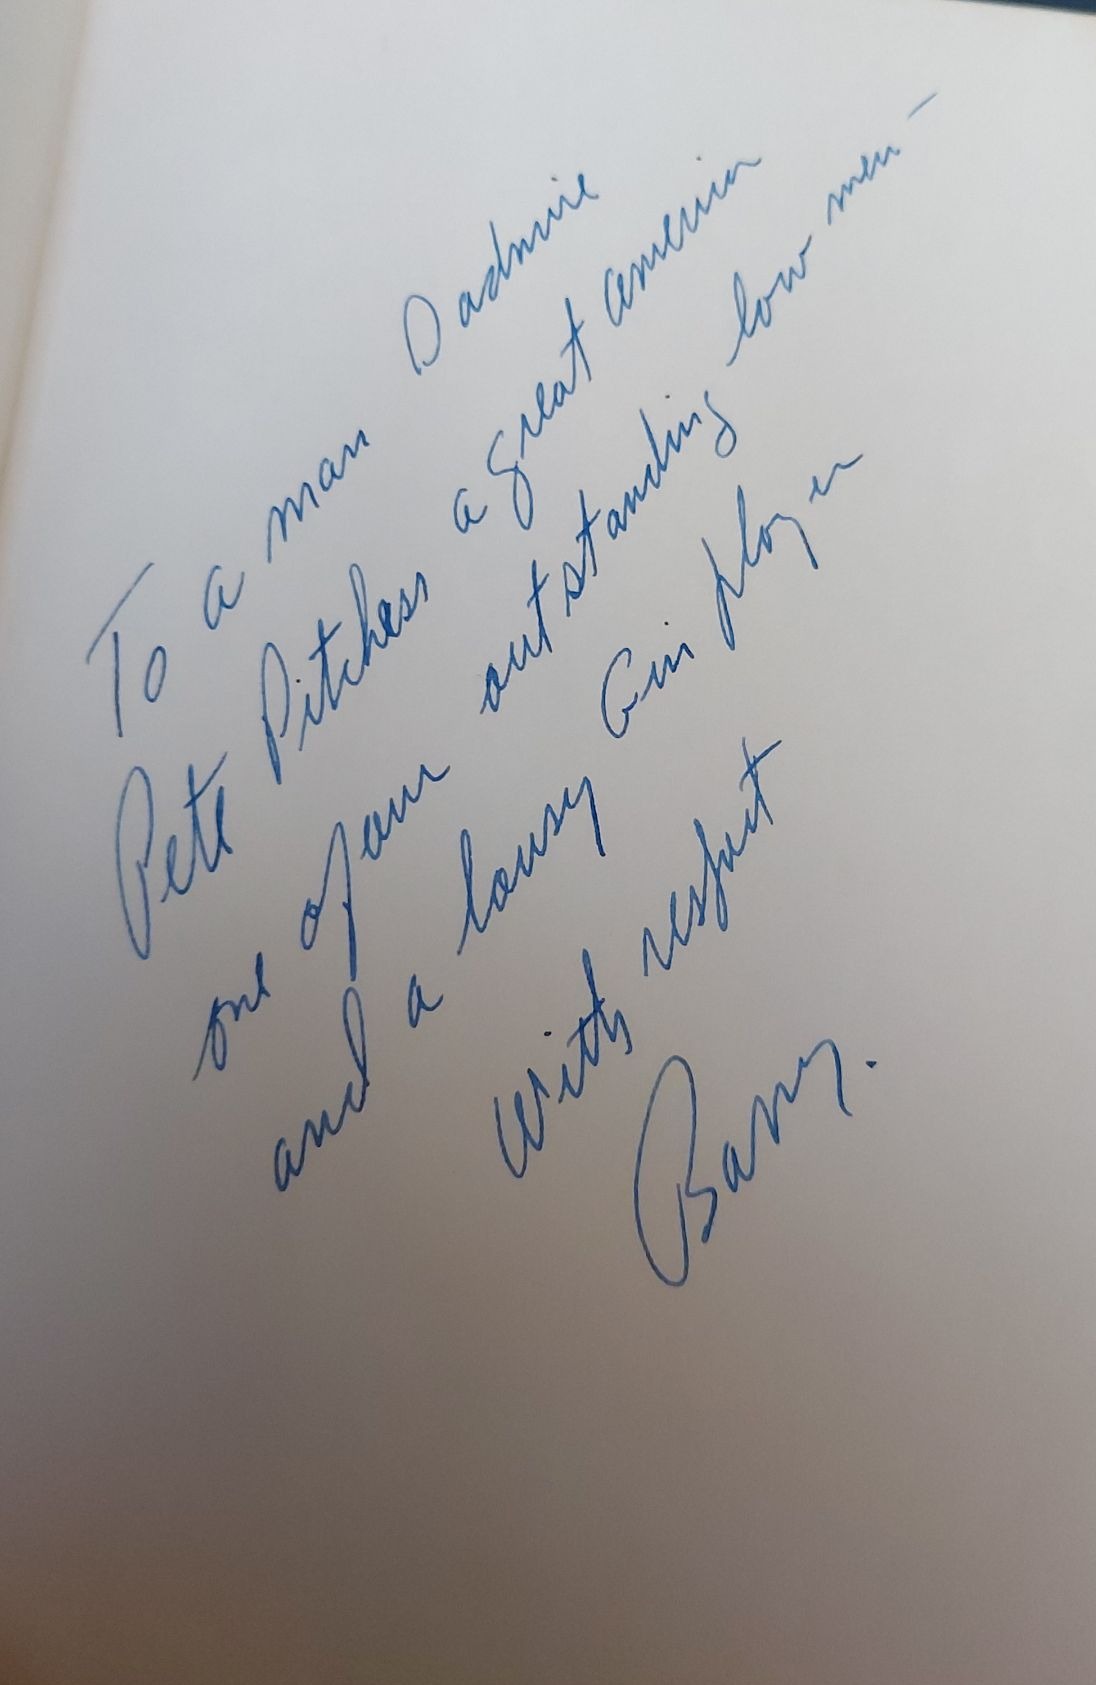 To a man I admire
Pete Pitchess a great American
one of our outstanding law men –
and a lousy Gin player
With respect
Barry.